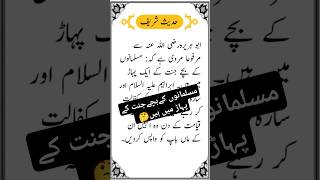 حدیث شریف
ابو ہریرہ رضی اللہ عنہ سے
مرفوعا مروی ہے کہ: مسلمانوں
کے بچے جنت کے ایک پہاڑ
ابراہیم علیہ السلام اور
سارہ
کفالت
مسلمانوں کے بچے جنت کے
پہاڑ میں ہیں🤔
قیامت کے دن وہ انہیں ان
کے ماں باپ کو واپس کردیں۔